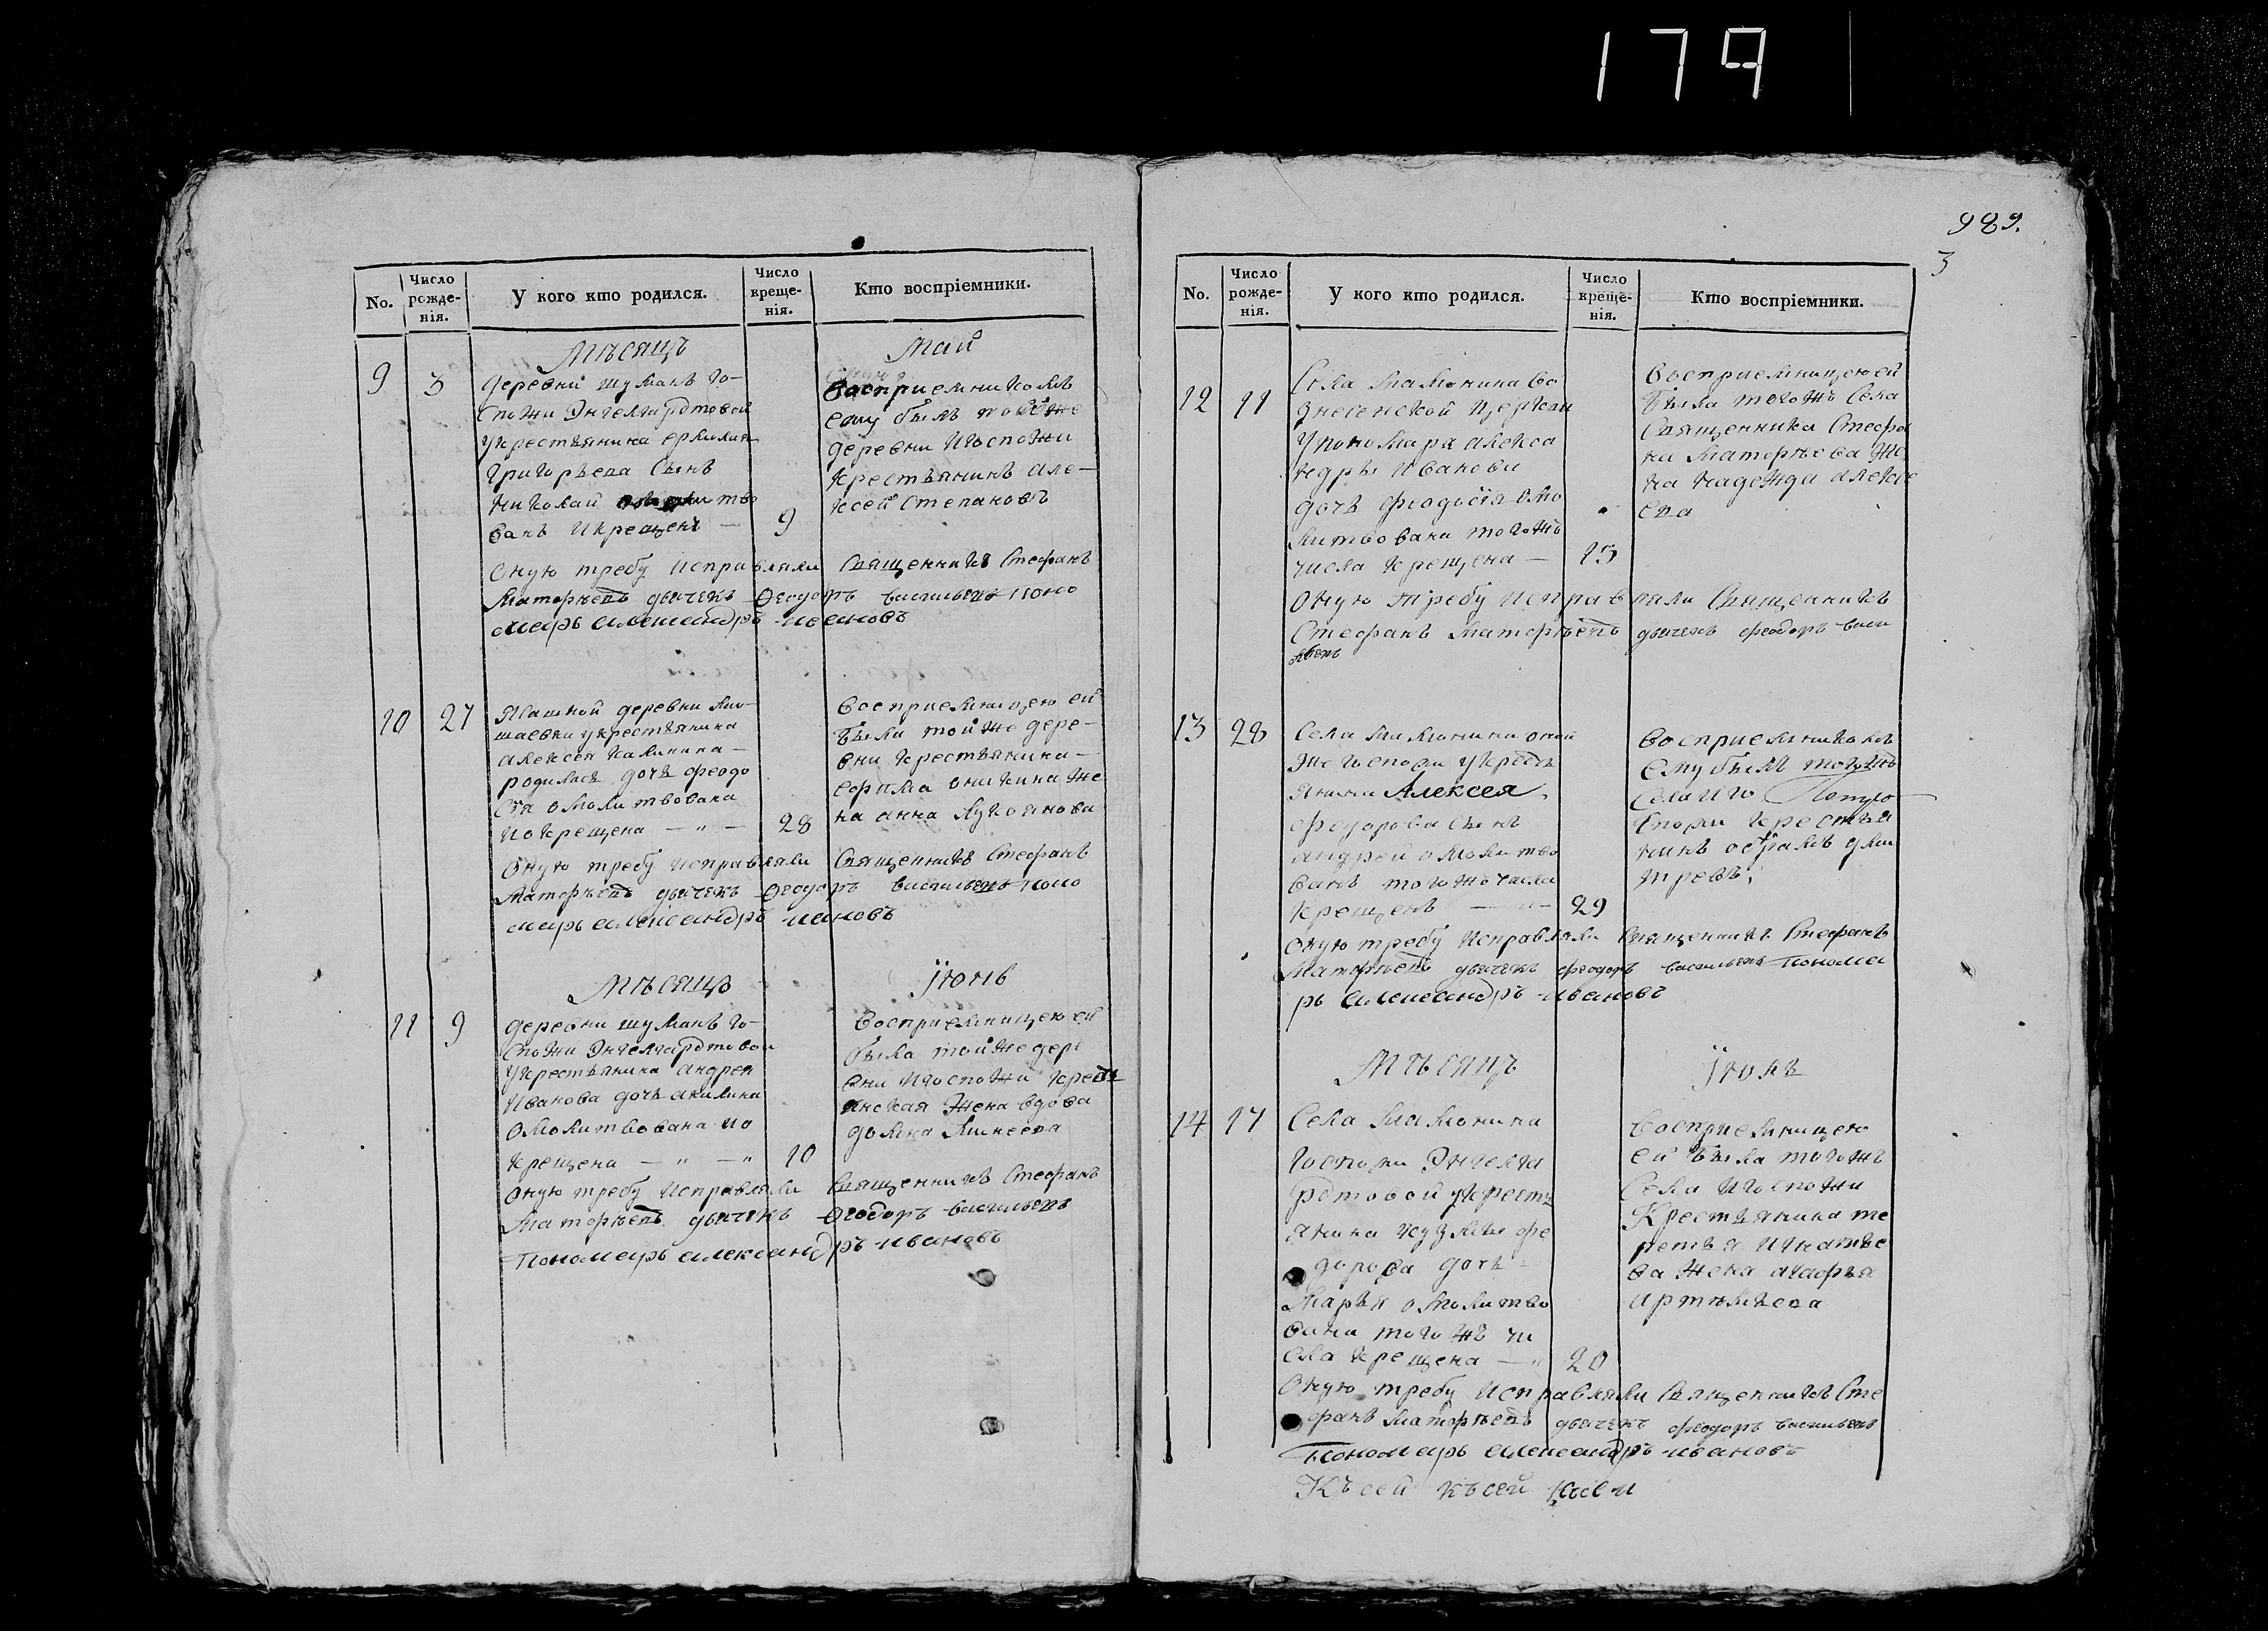 179
989.
3
No.
Число рожде-нія.
У кого кто родился.
Число креще-нія.
Кто воспріемники.
Мѣсяцъ
Май
9
3
деревни шуманъ го-
спожи Энгелгардтовой
укрестьянина
Григорьева Сынъ
Николай
ванъ Икрещенъ —
9
восприемникомъ
ему былъ
деревни Игоспожи
крестьянинъ але-
ксей Степановъ
Оную требу исправляли Священникъ Стефанъ
Матфѣевъ дьячекъ Ѳеодоръ васильевъ поно
марь александръ ивановъ
10
27
Ясашной деревни
укрестьянина
алексея калинина —
родилась дочь феодо
сія омолитвована
Ипокрещена — " —
28
восприемницею ей
была той же дере-
вни крестьянина —
ефима оникина же
на анна лукоянова
Оную требу исправляли Священникъ Стефанъ
Матфѣевъ дьячекъ Ѳеодоръ васильевъ поно
марь александръ ивановъ
Мѣсяцъ
Їюнь
11
9
деревни шуманъ го-
спожи Энгелгардтовой
укрестьянина андрея
Иванова дочь акилина
омолитвована ипо
крещена — " — "
10
восприемницею ей
была той же дере
вни Игоспожи крестья
нская жена вдова
домна
Оную требу исправляли Священникъ Стефанъ
Матфѣевъ дьячекъ Ѳеодоръ васильевъ
Пономарь александръ ивановъ
No.
Число рожде-нія.
У кого кто родился.
Число креще-нія.
Кто воспріемники.
12
11
Села мамонина во
знесенской церкви
упономаря алекса
ндры Иванова
дочь феодосїя омо
литвована тогожъ
числа крещена —
15
восприемницею ей
была тогожъ Села
Священника Стефа
на матфѣева же
на надежда алексе
ева
Оную требу исправляли Священникъ
Стефанъ матфѣевъ дьячекъ феодоръ васи
льевъ
13
28
Села мамонина оной
же госпожи укресть
янина Алексея
федорова сынъ
андрей омолитво
ванъ тогожъ числа
крещенъ — " —
29
восприемникомъ
ему былъ тогожъ
Села Иго
спожи крестья
нинъ
Оную требу исправляли Священникъ Стефанъ
матфѣевъ дьячекъ феодоръ васильевъ понома
рь александръ ивановъ
Мѣсяцъ
Їюль
14
17
Села мамонина
госпожи Энгелга
рдтовой укресть
янина кузмы фе
дорова дочь
Марья омолитво
вана тогожъ чи
сла крещена — "
20
восприемницею
ей была тогожъ
Села Игоспожи
Крестьянина те
рентья Игнатье
ва жена агафья
артемьева
Оную требу исправляли Священникъ Сте
фанъ матфѣевъ дьячекъ феодоръ васильевъ
Пономарь александръ ивановъ
Къ сей къ сей